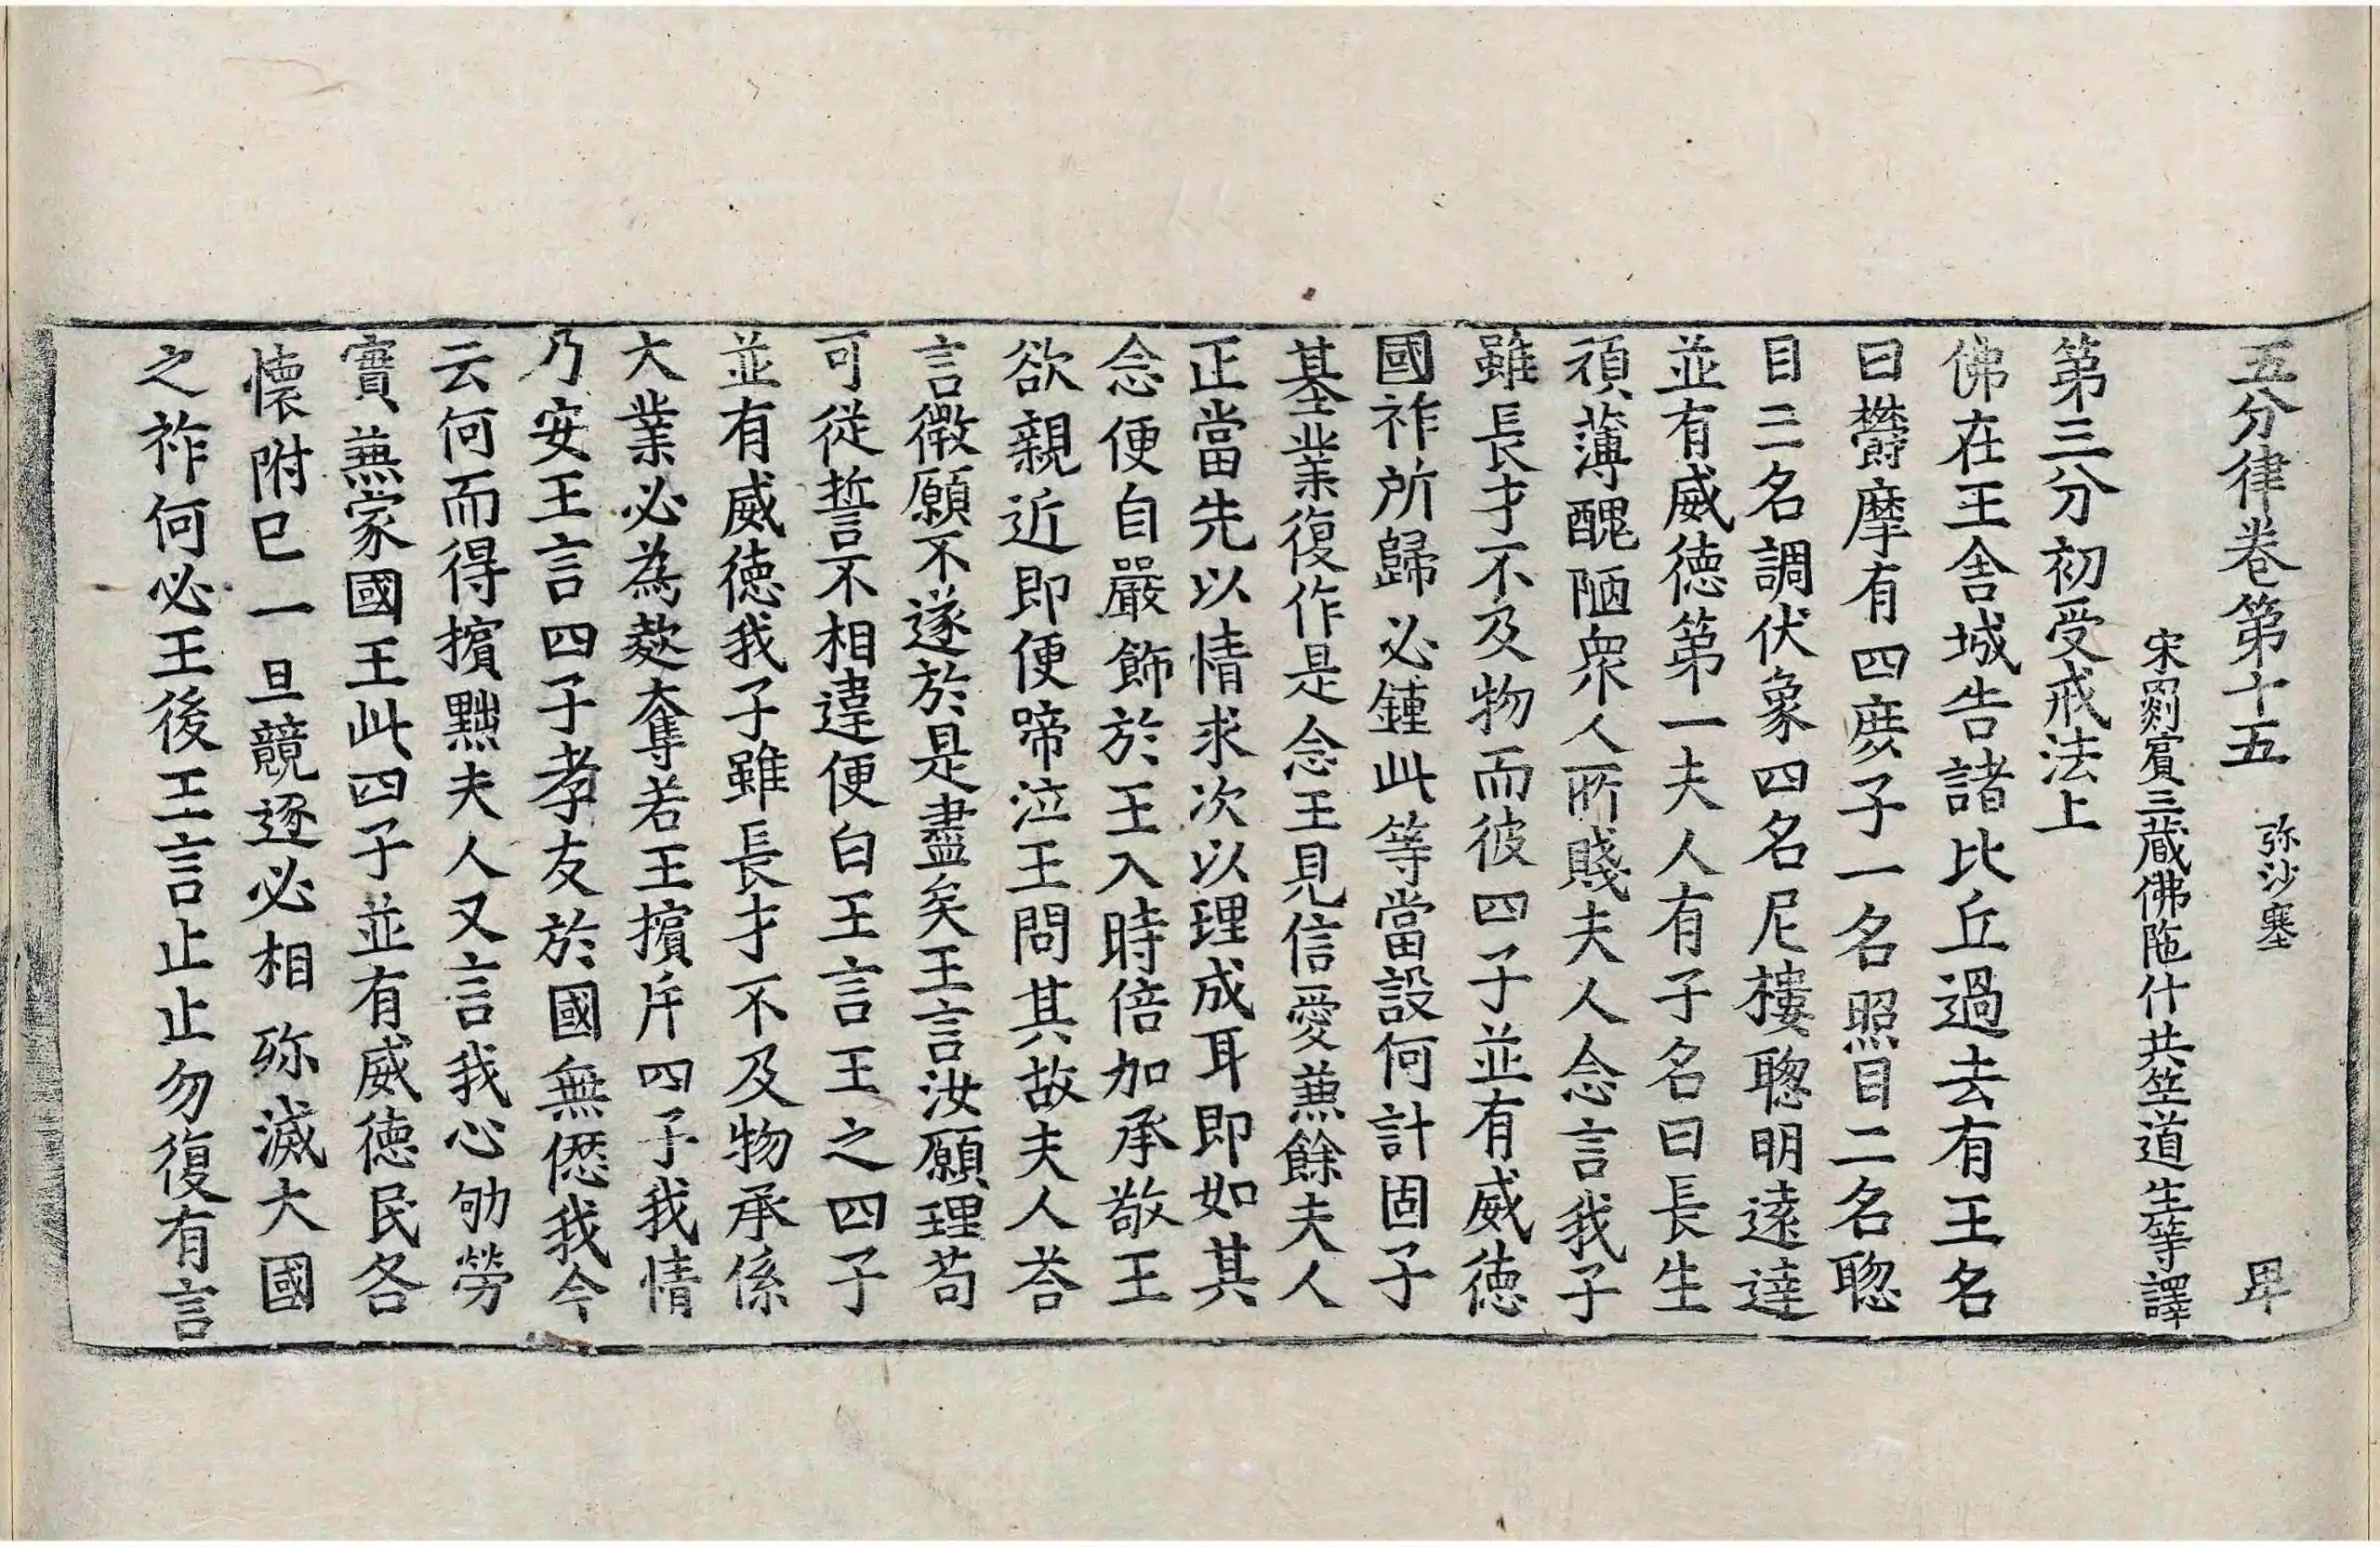 五分律卷第十五　弥沙塞　卑
宋罽賓三藏佛陁什共竺道生等譯
第三分初受戒法上
佛在王舍城告諸比丘過去有王名
曰欝摩有四庶子一名照目二名聦
目三名調伏象四名尼樓聦明遠達
並有威德第一夫人有子名曰長生
頑薄醜陋衆人所賤夫人念言我子
雖長才不及物而彼四子並有威德
國祚所歸必鍾此等當設何計固子
基業復作是念王見信愛兼餘夫人
正當先以情求次以理成耳即如其
念便自嚴飾於王入時倍加承敬王
欲親近即便啼泣王問其故夫人荅
言徵願不遂於是盡矣王言汝願理苟
可從誓不相違便白王言王之四子
並有威德我子雖長才不及物承係
大業必為凌奪若王擯斥四子我情
乃安王言四子孝友於國無愆我今
云何而得擯黜夫人又言我心劬勞
實兼家國王此四子並有威德民各
懷附已一旦競逐必相殄滅大國
之祚何必王後王言止止勿復有言